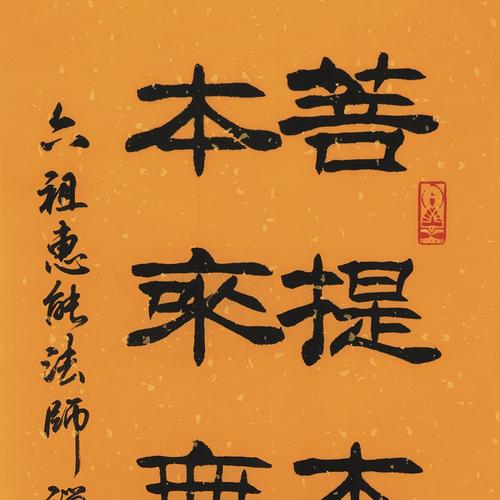 菩提本
本來無
六祖惠能法師